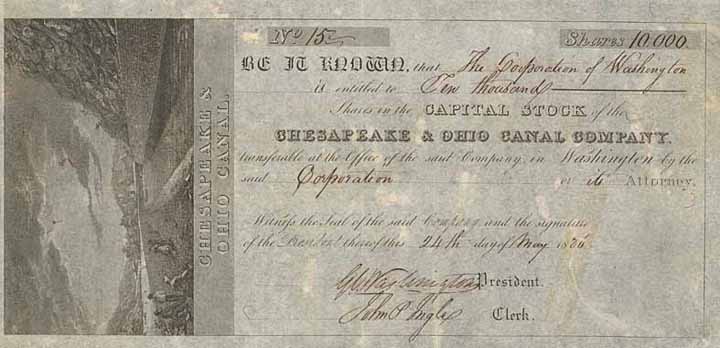 CHESAPEAKE &
OHIO CANAL.
No 15
Shares 10,000.
BE IT KNOWN, that The Corporation of Washington
is entitled to Ten thousand
Shares in the CAPITAL STOCK of the
CHESAPEAKE & OHIO CANAL COMPANY,
transferable at the Office of the said Company, in Washington by the
said Corporation or its Attorney.
Witness the Seal of the said Company, and the signature
of the President thereof this 24th day of May 1836
G C Washington President.
John P Ingle Clerk.